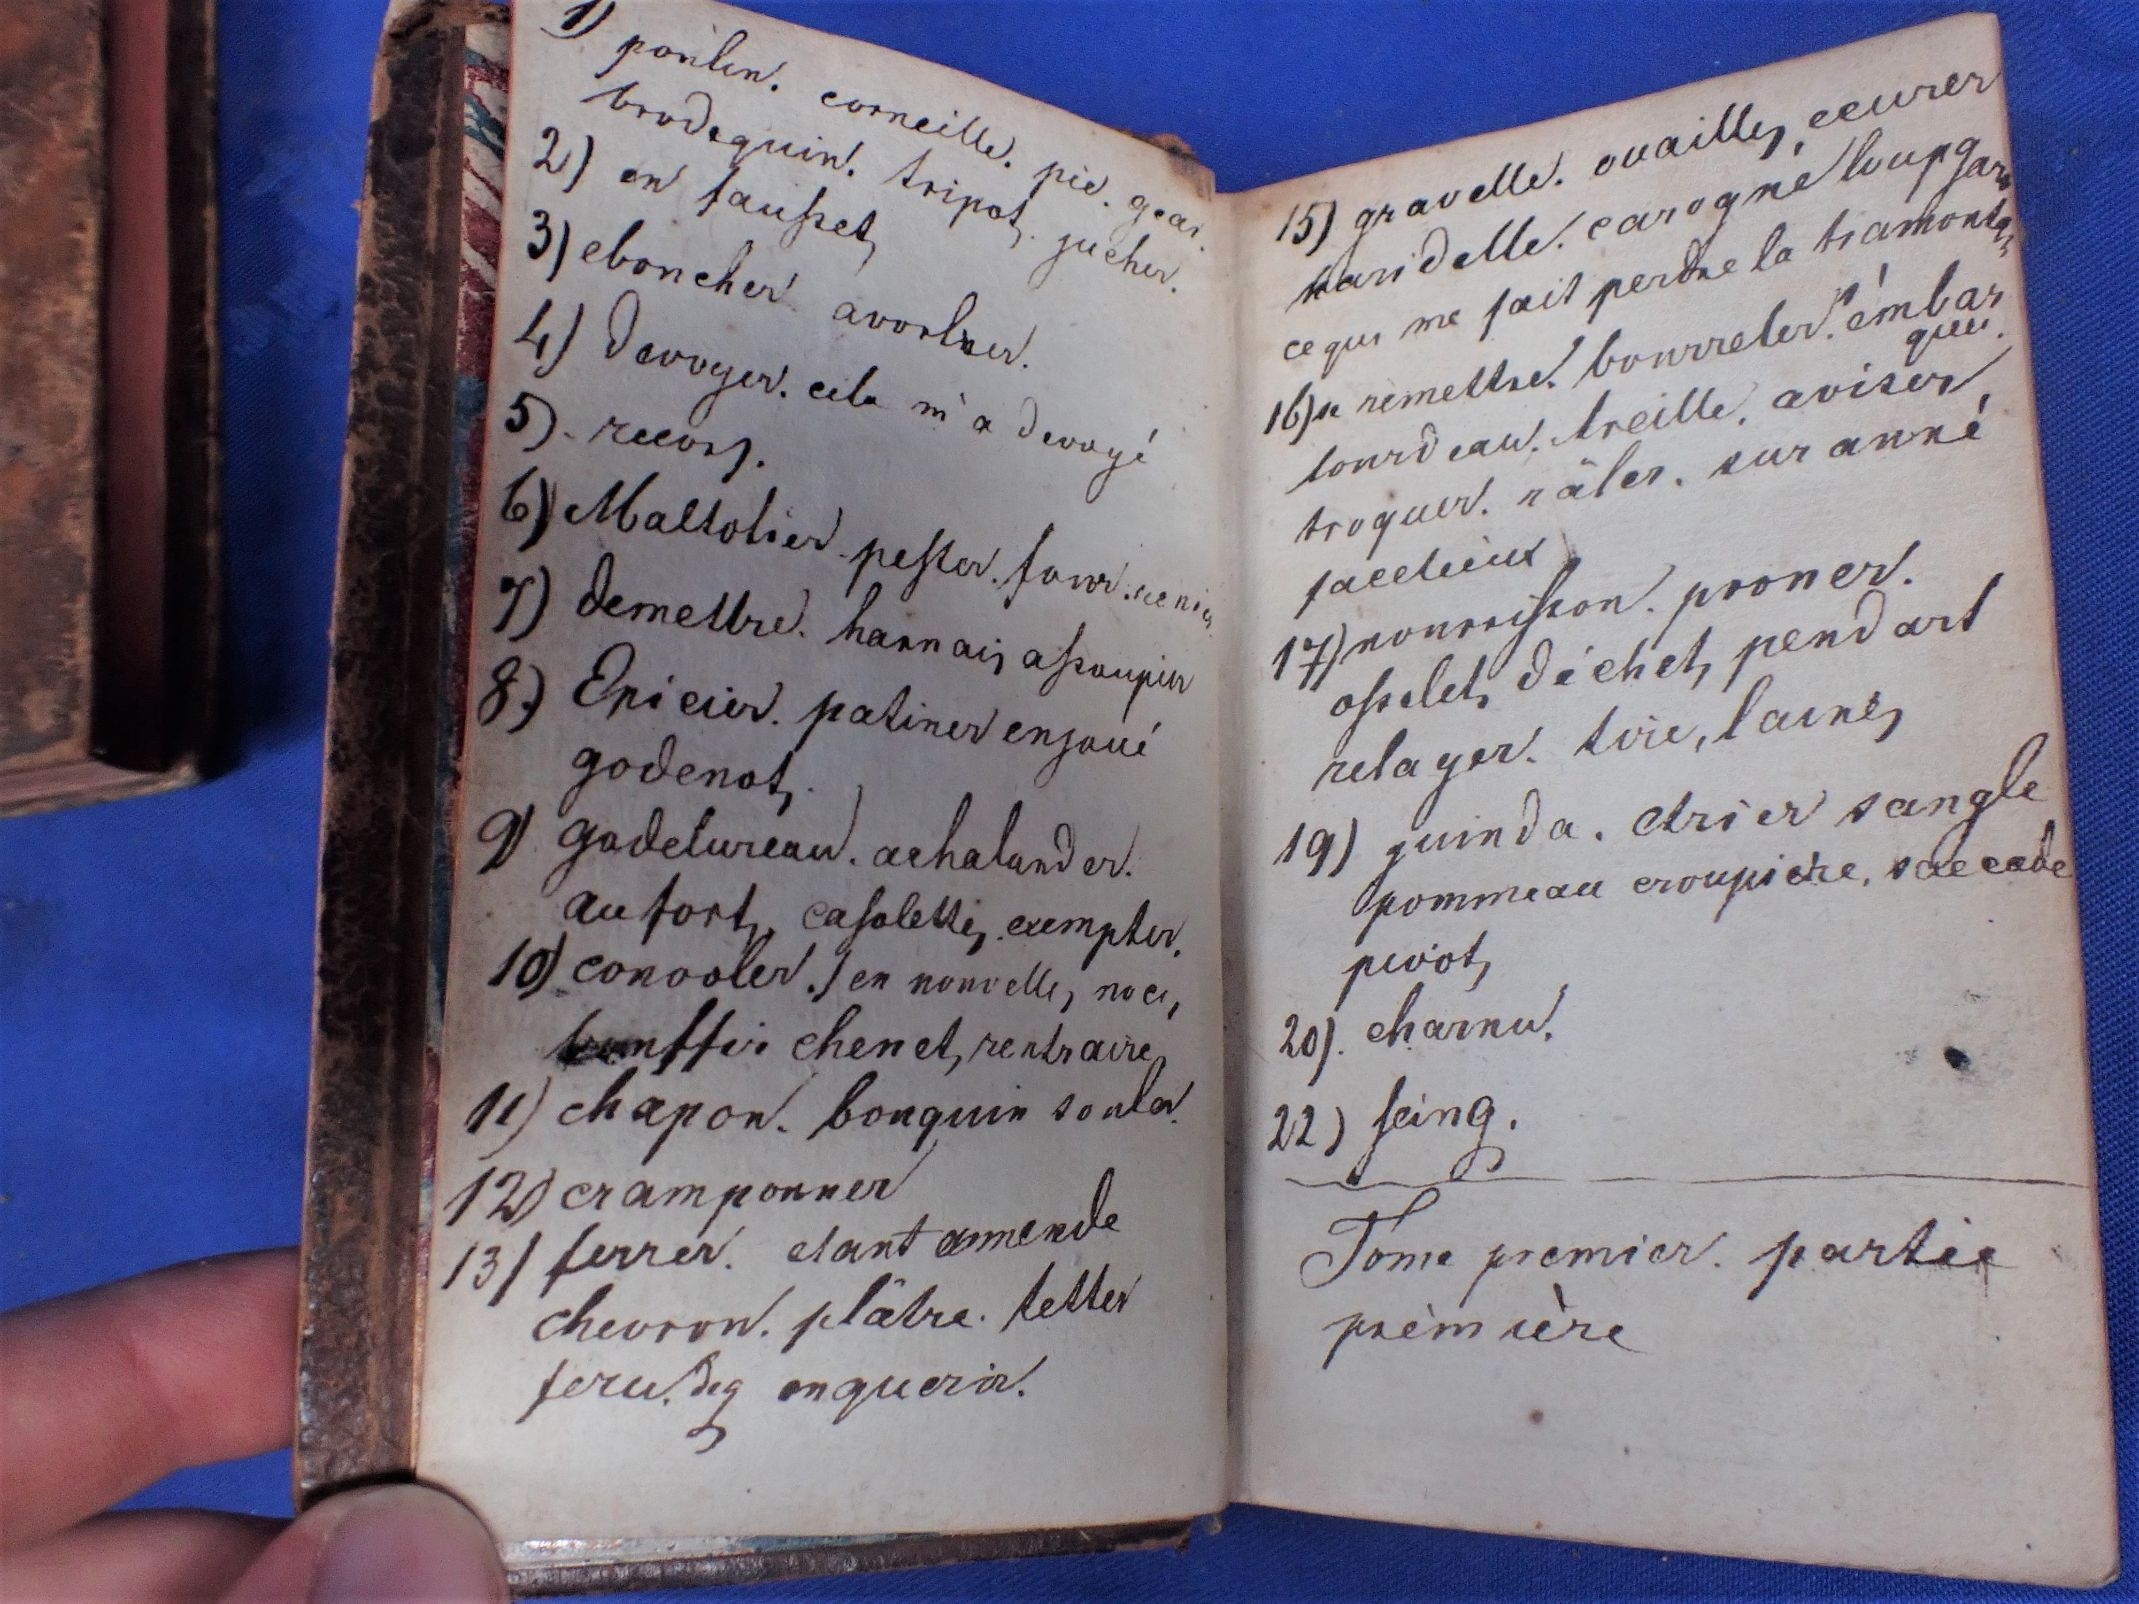 1) poulin. corneille. pie. geai.
brodequin. tripot, jucher.
2) en fausset,
3) eboucher avorter.
4) Devoyer. cela m'a devoyé
5). recors.
6) Maltotier. pester. four.
7) demettre. harnais, assoupir
8.) Epicier. patiner enjoué
godenot,.
9) godelureau. achalander.
au fort, casolette, exempter.
10) convoler. en nouvelles noces,
bouffir chenet, rentraire,
11) chapon. bouquin souler.
12) cramponner
13) ferrer. etant amende
chevron. plâtre. tetter
feru. enquerir.
15) gravelle. ouailles, ecurer
haridelle. carogne loupgarou
ce qui me fait perdre la tramontane
16) se remettre. bourreler. embar
quer.
lourdeau. treille. aviser
troquer. râler. suranné
facetieux
17) nourrisson. proner.
osselet, déchet, pendart
relayer. soie, laine,
19) guinda. etrier sangle
pommeau croupière, saccade
pivot,
20). charnu.
22) seing.
Tome premier. partie
première